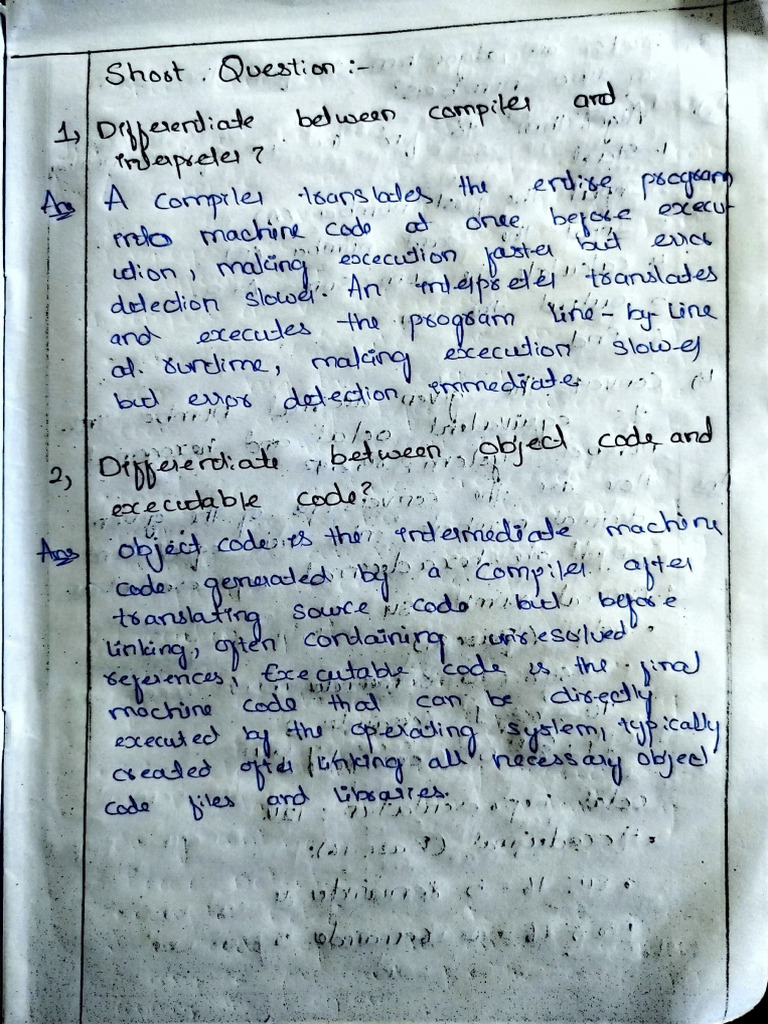 Short Question :-
1, Differentiate between compiler and
interpreter ?
Ans A compiler translates the entire program
into machine code at once before execu-
ution, making excecution faster but error
detection slower. An interpreter translates
and executes the program line-by-line
at runtime, making execution slower
but error detection immediate
2, Differentiate between object code and
executable code?
Ans object code is the intermediate machine
code generated by a compiler after
translating source code but before
linking, often containing unresolved
references, Executable code is the final
machine code that can be directly
executed by the operating system, typically
created after linking all necessary object
code files and libraries.